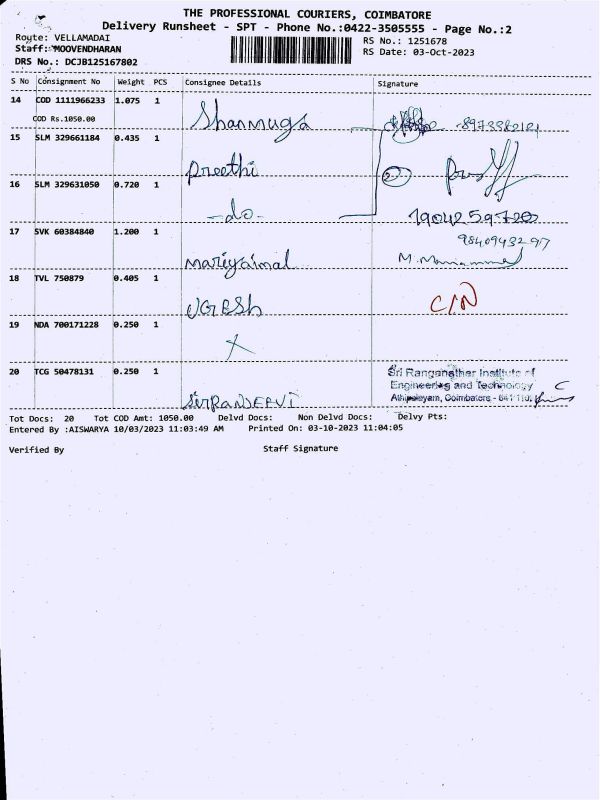 THE PROFESSIONAL COURIERS, COIMBATORE
Delivery Runsheet - SPT - Phone No.:0422-3505555 - Page No.:2
Royte: VELLAMADAI
RS No.: 1251678
Staff: MOOVENDHARAN
RS Date: 03-Oct-2023
DRS No.: DCJB125167802
S No Consignment No Weight PCS Consignee Details Signature
14 COD 1111966233 1.075 1 Shanmuga
COD Rs.1050.00
15 SLM 329661184 0.435 1 Preethi
16 SLM 329631050 0.720 1 -do- 2
17 SVK 60384840 1.200 1 Mariyaimal
18 TVL 750879 0.405 1 UGESh C/N
19 NDA 700171228 0.250 1 X
20 TCG 50478131 0.250 1
Sri Ranganathar Institute of
Engineering and Technology
Athipalayam, Coimbatore - 641 110.
Tot Docs: 20 Tot COD Amt: 1050.00 Delvd Docs: Non Delvd Docs: Delvy Pts:
Entered By :AISWARYA 10/03/2023 11:03:49 AM Printed On: 03-10-2023 11:04:05
Verified By Staff Signature